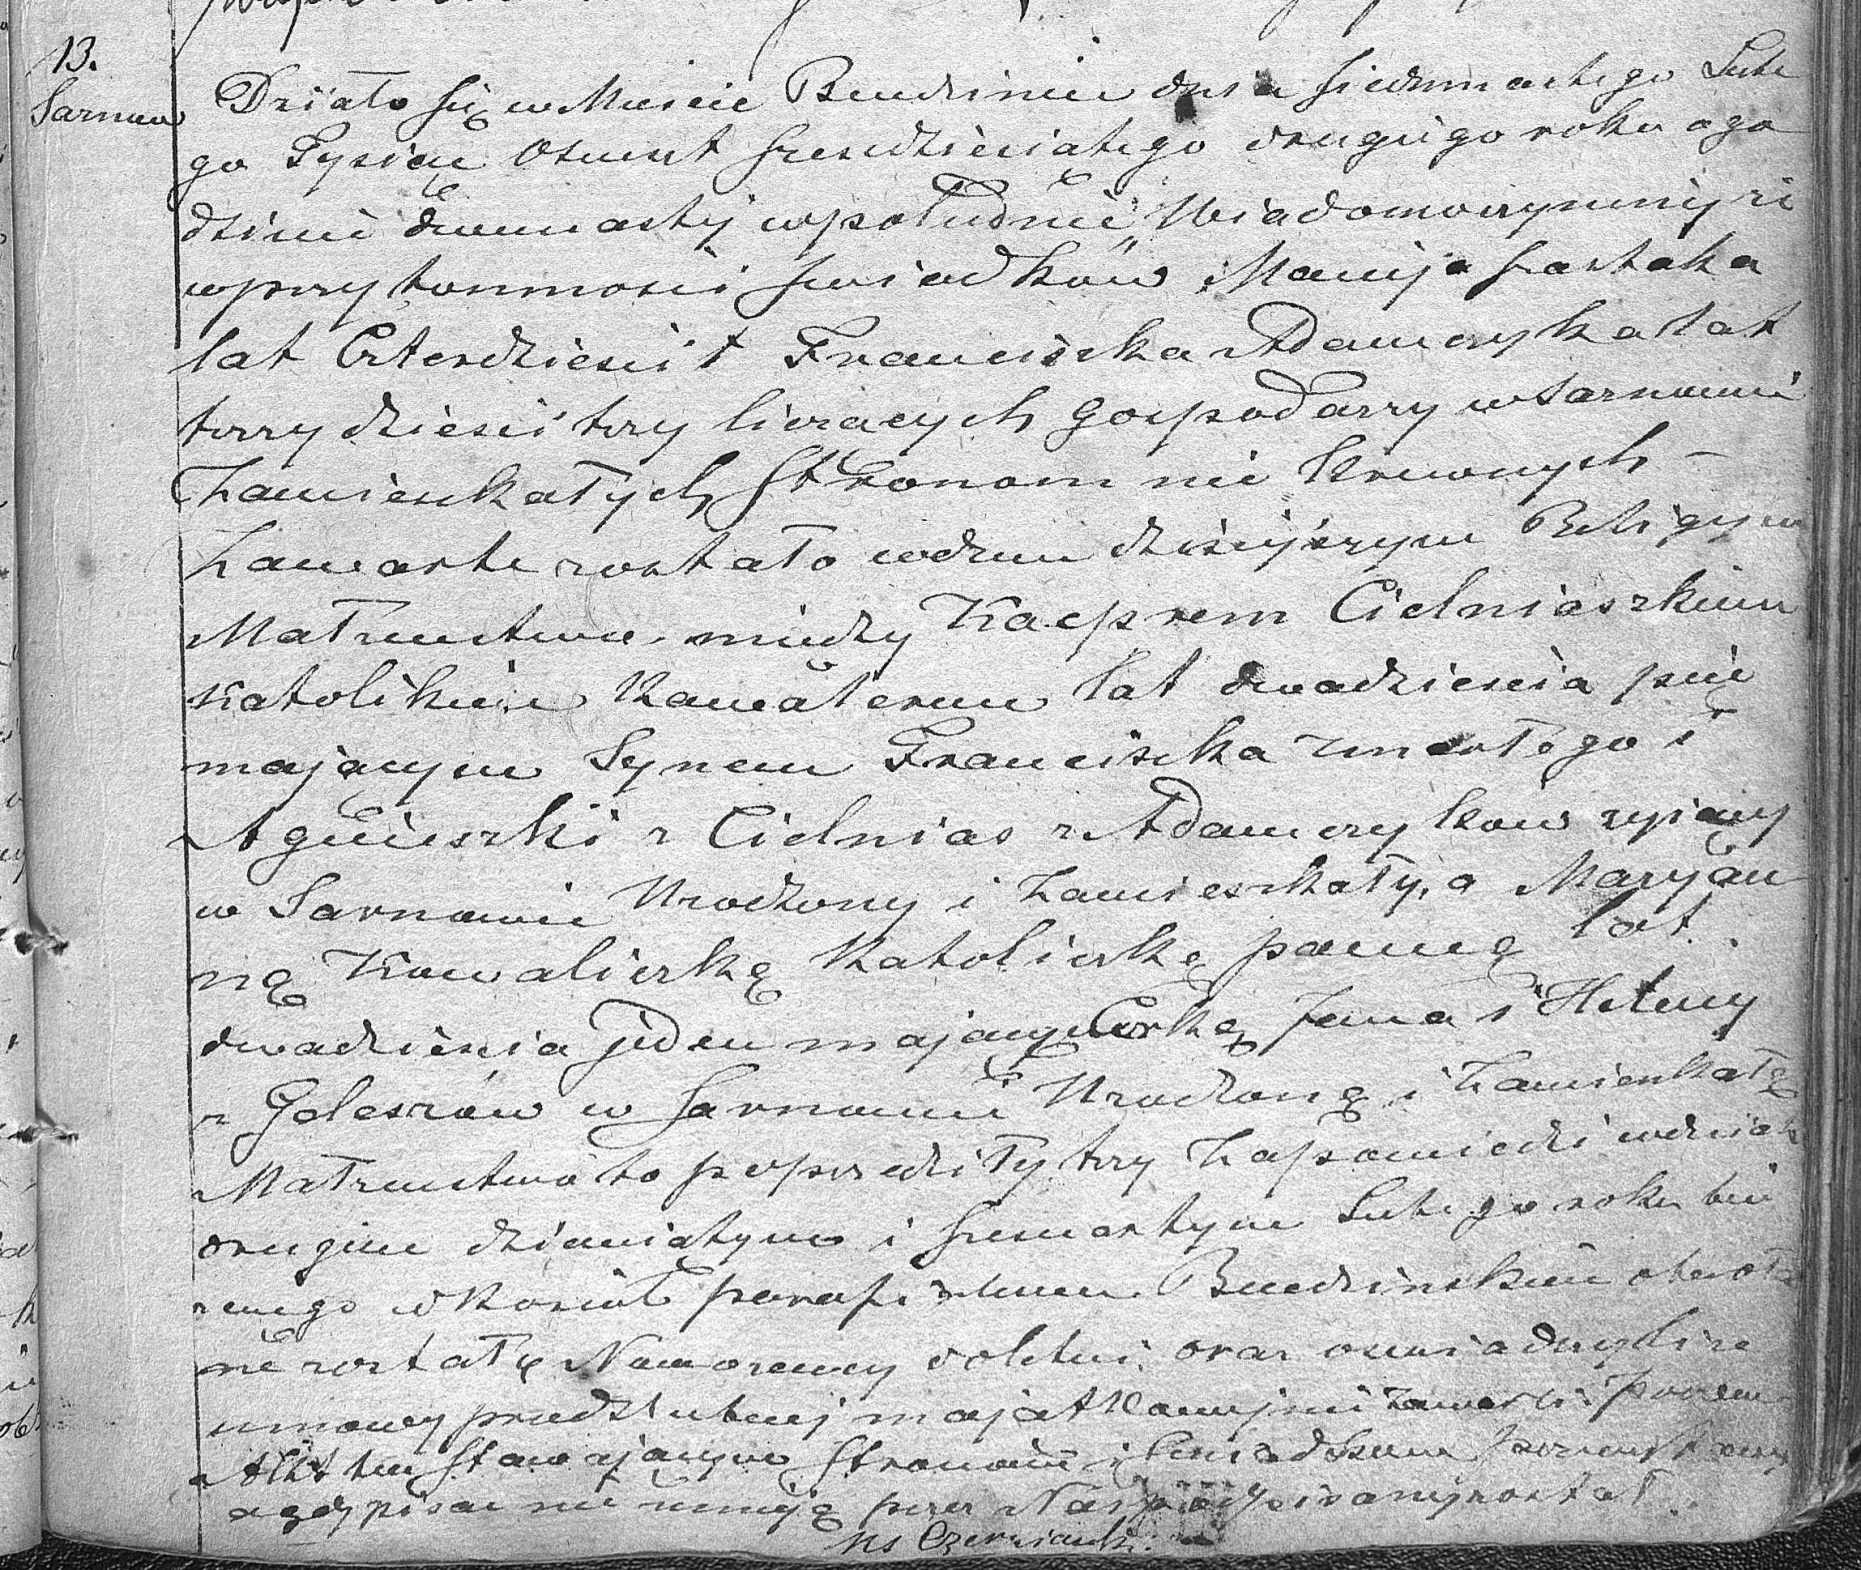 13.
Sarnow
Działo się w Mieście Bendzinie dnia siedmnastego Lute
go Tysiąc Osmset sześdziesiątego drugiego roku o go
dzinie dwunasty w południe Wiadomo czyniemy że
w przytomności świadków Macieja
lat Czterdzieści i Franciszka Adamczyka lat
trzydzieści trzy liczących gospodarzy w Sarnowie
Zamieszkałych Stronom nie krewnych –
Zawarte zostało w dniu dzisiejszym Religijne
Małżeństwo między Kacprem Cielniaszkiem
Katolikiem Kawalerem lat dwadzieścia pięć
mającym Synem Franciszka zmarłego i
Agnieszki z Cielnias z Adamczyków żyjący
w Sarnowie Urodzony i Zamieszkały, a Maryan
ną Kowalierką Katoliczką panną lat
dwadzieścia jeden mającą Corką Jana i Heleny
z Goleszów w Sarnowie Urodzoną i Zamieszkałą
Małżeństwo to poprzedziły trzy Zapowiedzi w dniach
drugim dziewiątym i szesnastym Lutego roku bie
żącego w kościele parafialnem Bendzinskim ogłoszo
ne zostały Nowożeńcy oraz oświadczyli że
umowy przedślubnej majątkowej nie zawarli poczem
Akt ten Stawającym Stronom i Świadkom przeczytany
a gdy pisać nie umieją przez Nas podpisany został
Ks